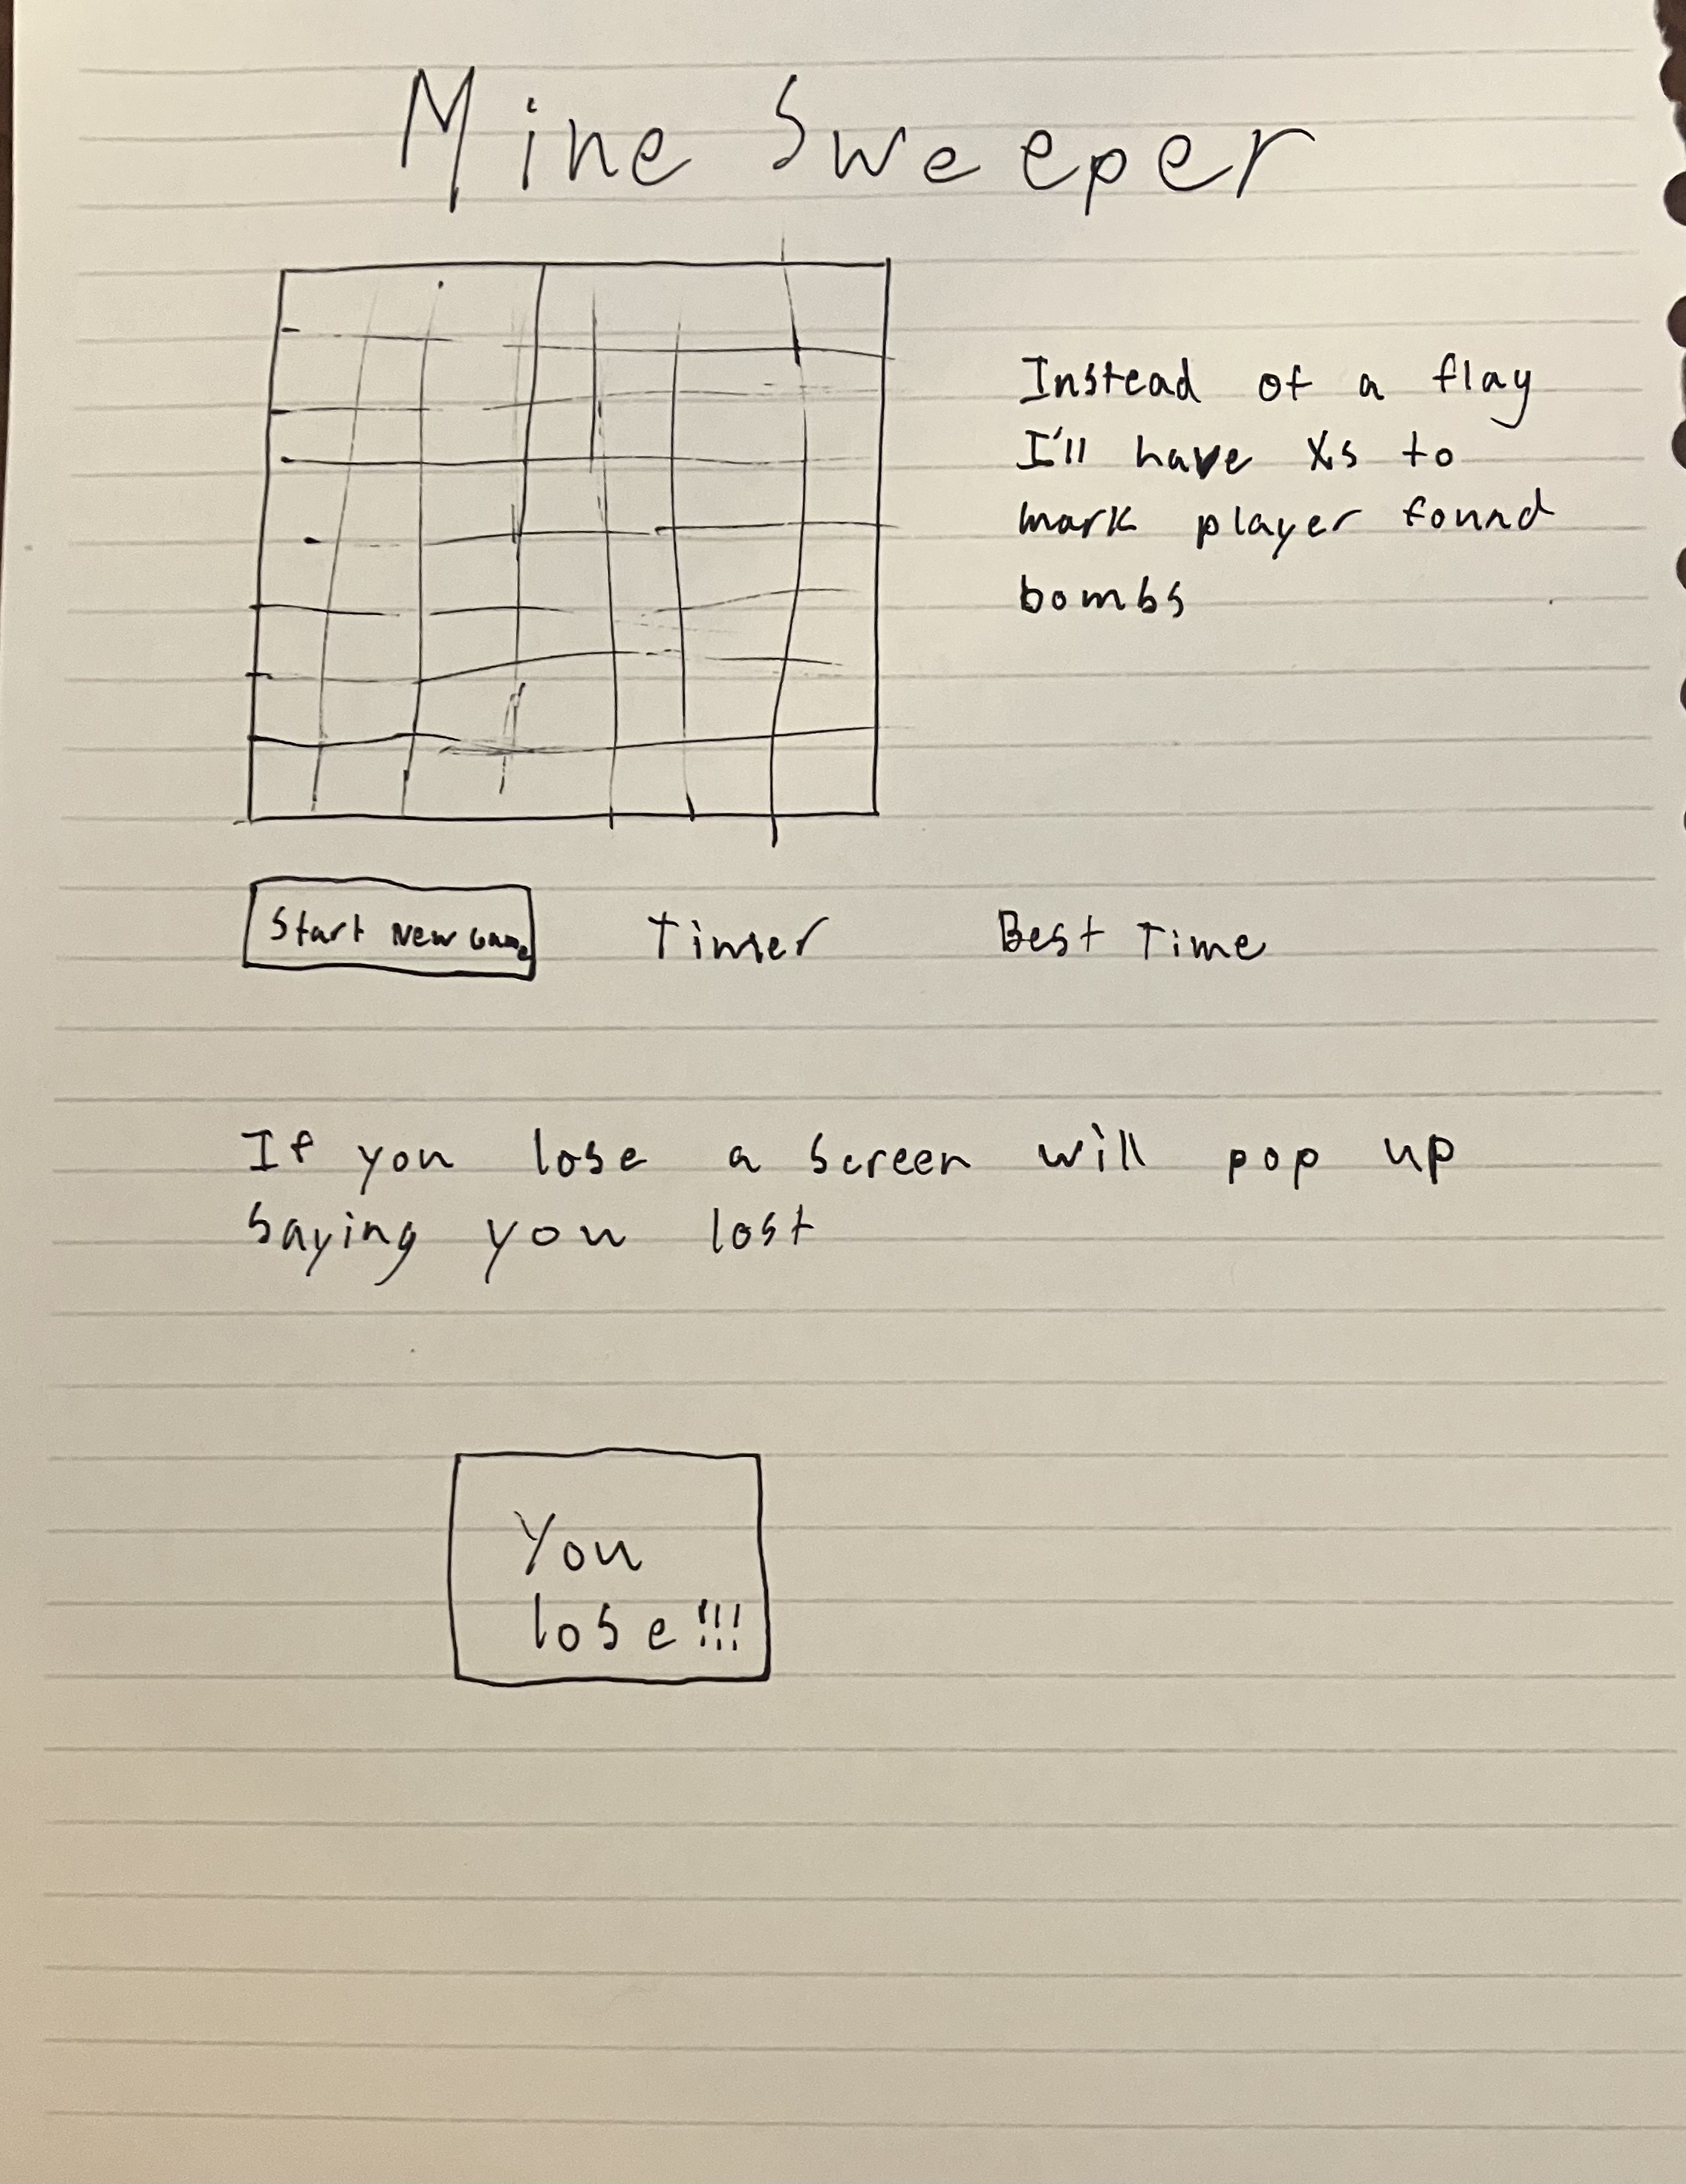 Mine Sweeper
Instead of a flag
I'll have Xs to
mark player found
bombs
Start New Game
Timer
Best Time
If you lose a screen will pop up
saying you lost
You
lose!!!